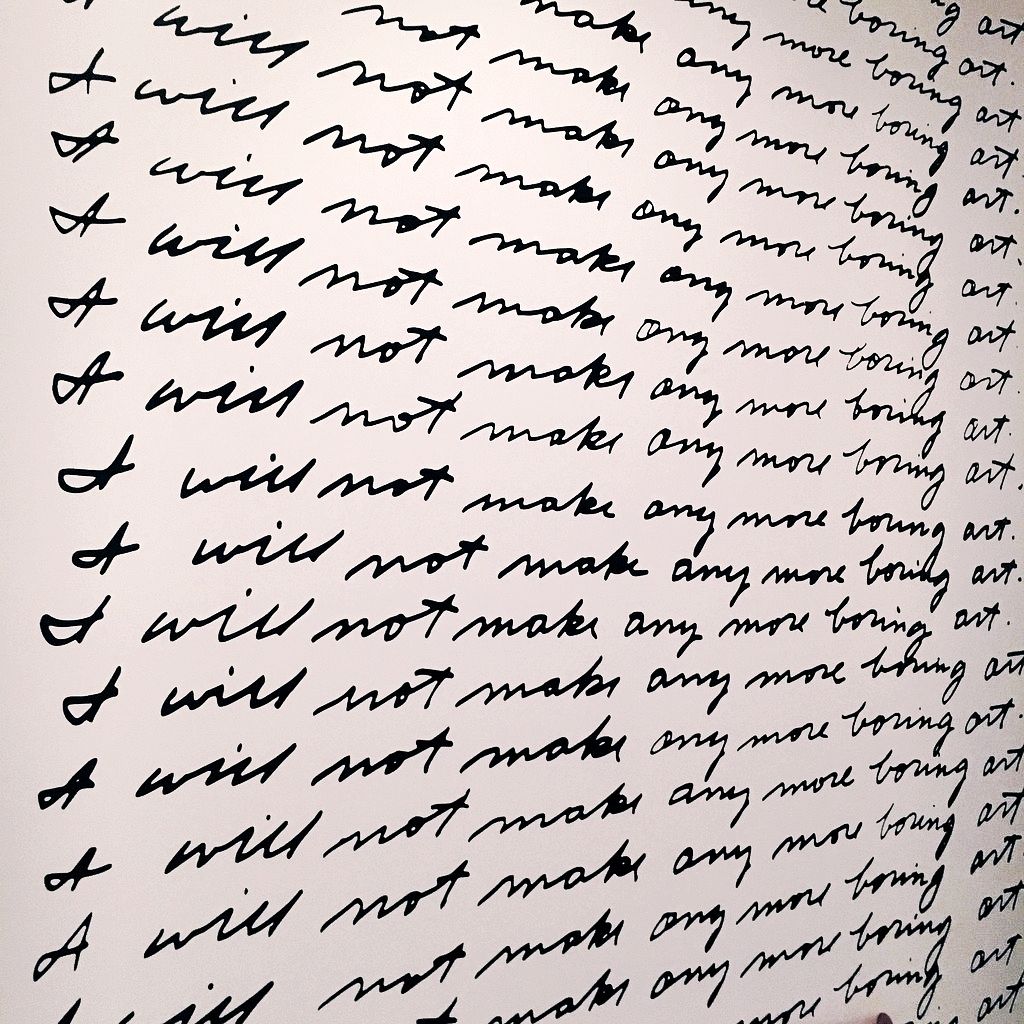 art
boring art.
any more boring art
make any more boring art.
not make any more boring art.
I will not make any more boring art.
I will not make any more boring art.
I will not make any more boring art
I will not make any more boring art.
I will not make any more boring art.
I will not make any more boring art.
I will not make any more boring art.
I will not make any more boring art.
I will not make any more boring art.
I will not make any more boring art
I will not make any more boring art.
I will not make any more boring art
I will not make any more boring art
I will not make any more boring art.
make any more boring art
more boring art
art